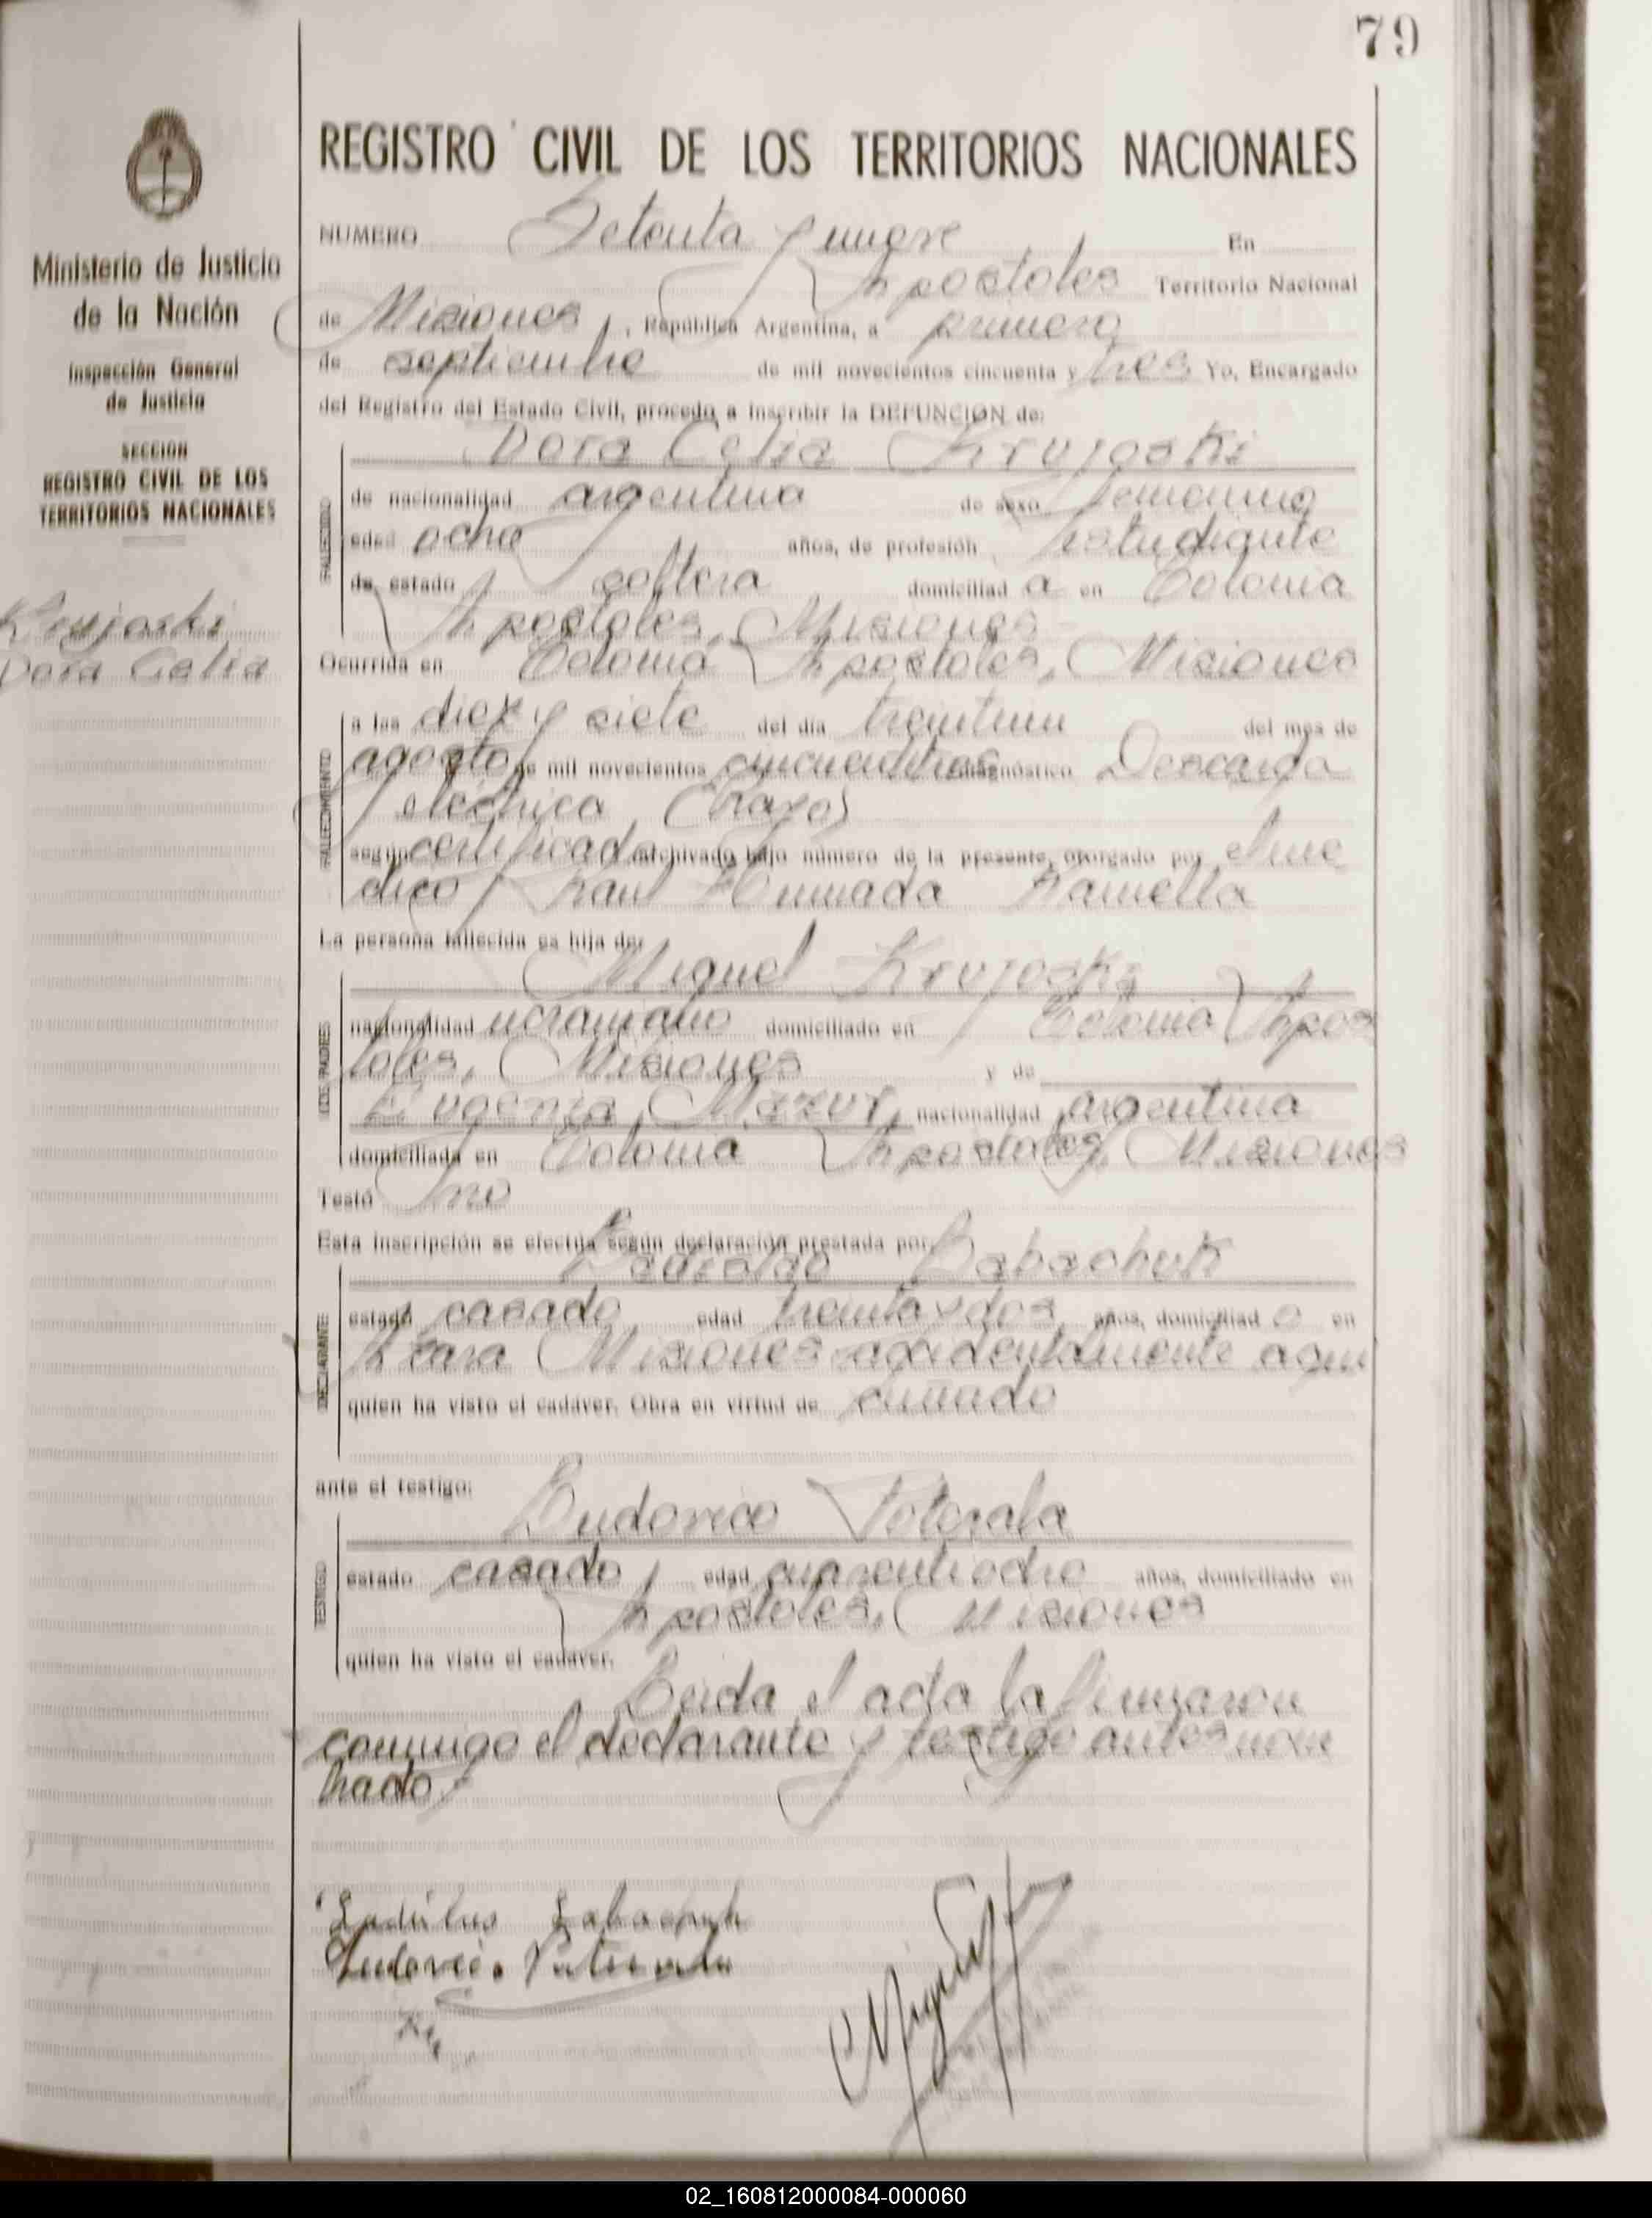 79
REGISTRO CIVIL DE LOS TERRITORIOS NACIONALES
Ministerio de Justicia
de la Nación
Inspección General
de Justicia
SECCION
REGISTRO CIVIL DE LOS
TERRITORIOS NACIONALES
Krujoski
Dora Celia
NUMERO Setenta y nueve En
Apostoles Territorio Nacional
de Misiones, República Argentina, a primero
de septiembre de mil novecientos cincuenta y tres Yo, Encargado
del Registro del Estado Civil, procedo a inscribir la DEFUNCION de:
Dora Celia Krujoski
FALLECIDO
de nacionalidad argentina de sexo femenino
edad ocho años, de profesión estudiante
de estado soltera domiciliada en Colonia
Apostoles, Misiones
Ocurrida en Colonia Apostoles, Misiones
FALLECIMIENTO
a las diez y siete del día treintiuno del mes de
agosto de mil novecientos cincuentitres diagnóstico Descarga
electrica (rayo)
según certificado archivado bajo número de la presente, otorgado por el me
dico Raul Ramella
La persona fallecida es hija de:
Miguel Krujoski
LOS PADRES
nacionalidad ucraniano domiciliado en Colonia Apos
toles, Misiones y de
Eugenia Mazur, nacionalidad argentina
domiciliada en Colonia Apostoles, Misiones
Testó no
Esta inscripción se efectúa según declaración prestada por:
Ladislao Babachuk
DECLARANTE
estado casado edad treinta y dos años, domiciliado en
Azara Misiones accidentalmente aqui
quien ha visto el cadáver. Obra en virtud de cuñado
ante el testigo:
Ludovico Poterala
TESTIGO
estado casado edad cuarentiocho años, domiciliado en
Apostoles, Misiones
quien ha visto el cadáver.
Leida el acta la firmaron
conmigo el declarante y testigo antes nom
brado
Miguel
02_160812000084-000060